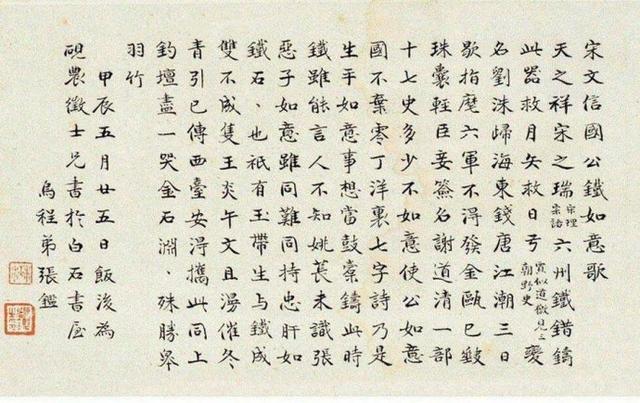 宋文信國公鐵如意歌
天之祥宋之瑞宗理宗語六州鐵錯鑄
此器救月矢救日弓賈似道儆見三朝野史夔
名劉洙歸海東錢唐江潮三日
歇指麾六軍不得發金甌已缺
珠囊輕臣妾簽名謝道清一部
十七史多少不如意使公如意
國不棄零丁洋裏七字詩乃是
生平如意事想當鼓橐鑄此時
鐵雖能言人不知姚萇未識張
惡子如意雖同難同持忠肝如
鐵石、也祇有玉帶生与鐵成
雙不成隻王炎午文且漫催冬
青引已傳西臺安得攜此同上
釣壇盡一哭金石淵、殊勝舉
羽竹
甲辰五月廿五日飯後為
硯農徵士兄書於白石書屋
烏程弟張鑑